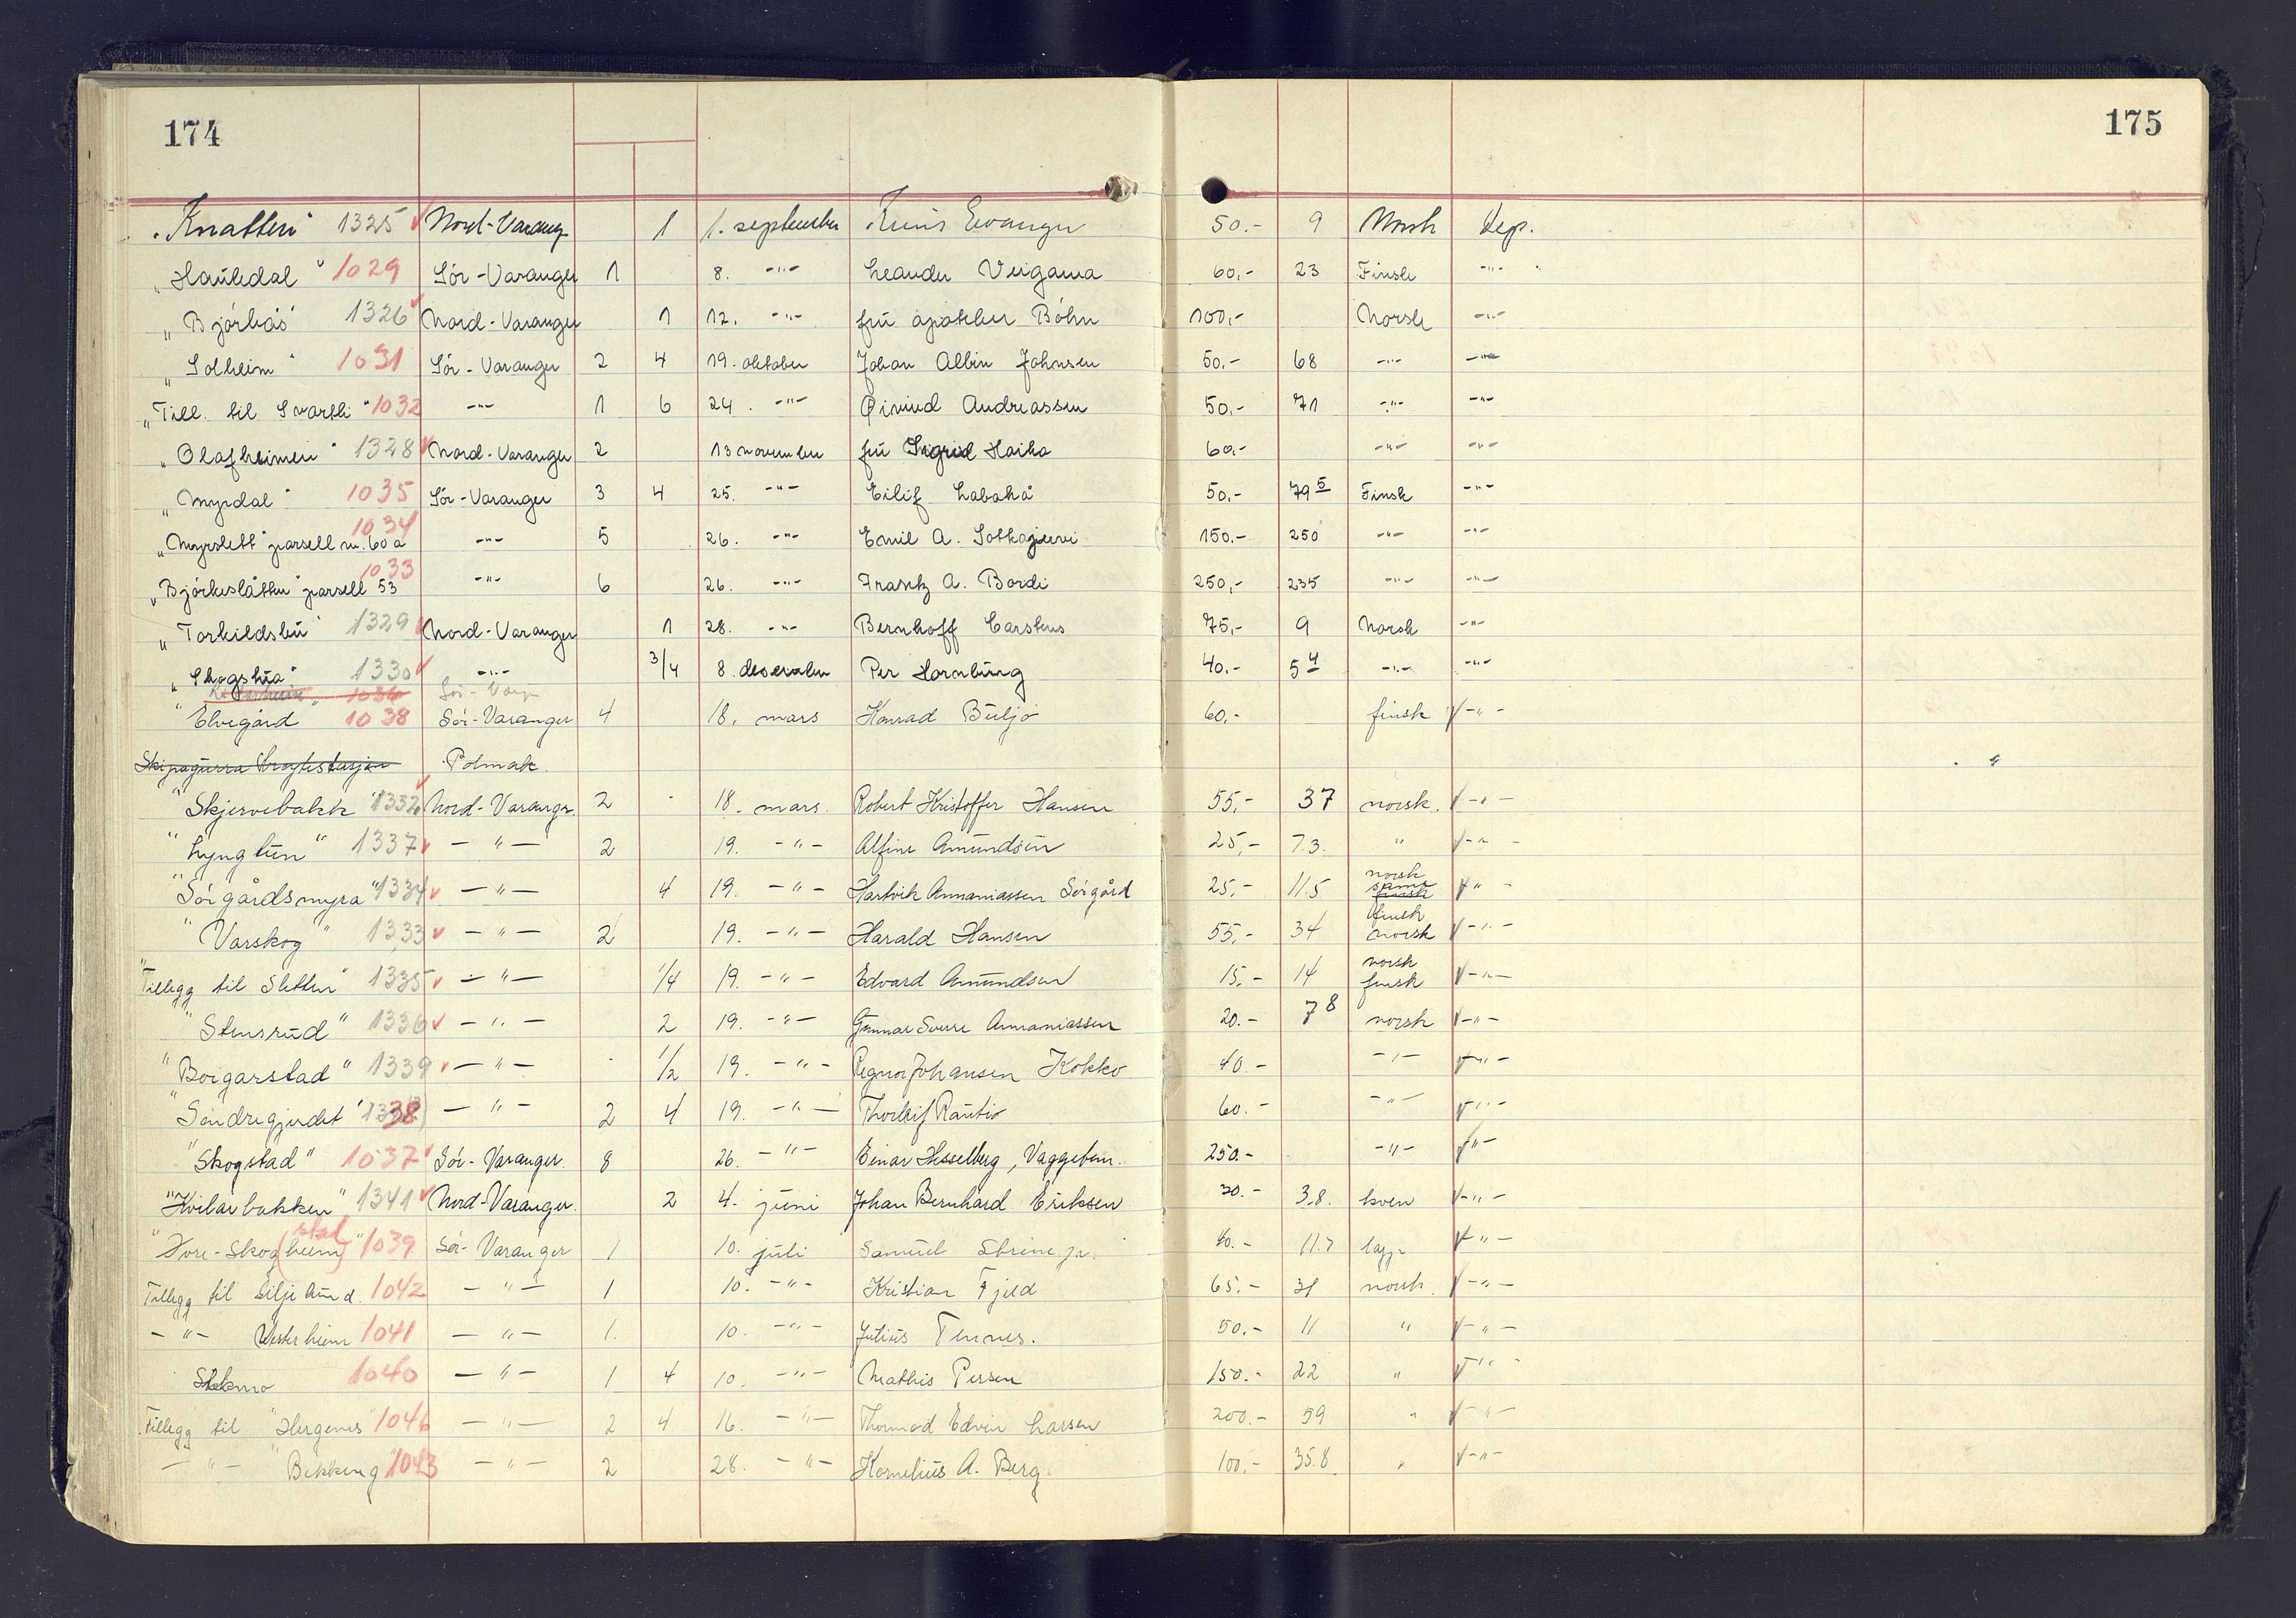 174
175
"Knatten" 1325 Nord-Varang. 1 1. september Evanger 50.- 9 Norsk Dep.
"Haukedal" 1029 Sör-Varanger 1 8. -"- Leander Veigama 60,- 23 Finsk -"-
"Björkås" 1326 Nord-Varanger 1 12. -"- fru apoteker Böhn 100,- Norsk -"-
"Solheim" 1031 Sör-Varanger 2 4 19. oktober Johan Albin Johnsen 50.- 68 -"- -"-
"Till. til Svartli" 1032 -"- 1 6 24. -"- Øivind Andreassen 50,- 71 -"- -"-
"Olafheimen" 1328 Nord-Varanger 2 13 november fru Ingrid Haika 60,- -"- -"-
"Myrdal" 1035 Sör-Varanger 3 4 25. -"- Eilif Labahå 50,- 79 5 Finsk -"-
"Myrslett" parsell nr. 60 a 1034 -"- 5 26. -"- Emil A. Sotkajærvi 150,- 250 -"- -"-
"Björkeslåtten" parsell 53 1033 -"- 6 26. -"- Frantz A. Bordi 250,- 235 -"- -"-
"Torkildsbu" 1329 Nord-Varanger 1 28. -"- Bernhoff Carstens 75,- 9 Norsk -"-
"Skogstua" 1330 -"- 3/4 8. desember Per Hornburg 40.- 5 4 -"- -"-
1036 Sör-Vara
"Elvegård" 1038 Sör-Varanger 4 18. mars Konrad Buljo 60.- finsk -"-
Skipagurra Polmak.
"Skjervebakk" 1332 Nord-Varangr. 2 18. mars. Robert Kristoffer Hansen 55,- 37 norsk. -"-
"Lyngtun" 1337 -"- 2 19. -"- Alfine Amundsen 25,- 7.3. " -"-
"Sörgårdsmyra" 1334 -"- 4 19. -"- Hartvik Annaniassen Sörgård 25,- 11.5 norsk samt finsk -"-
"Varskog" 1333 -"- 2 19. -"- Harald Hansen 55,- 34 finsk norsk -"-
"Tillegg til Sletten" 1335 -"- 1/4 19. -"- Edvard Amundsen 15,- 14 norsk finsk -"-
"Stensrud" 1336 -"- 2 19. -"- Gunnar Sverre Annaniassen 20.- 7 8 norsk -"-
"Borgarstad" 1339 -"- 1/2 19. -"- Regnor Johansen Kokko 40.- -"- -"-
"Söndregjerdet" 1338 -"- 2 4 19. -"- Thorleif Rautio 60.- -"- -"-
"Skogstad" 1037 Sör-Varanger. 8 26. -"- Einar Hesselberg, Vaggetem. 250.- -"- -"-
"Kvilarbakken" 1341 Nord-Varanger. 2 4. juni Johan Bernhard Eriksen 30.- 3,8. kven -"-
"Fore-Skog(heim)" stad 1039 Sör-Varanger 1 10. juli Samuel Strine jr. 40.- 11.7 lapp -"-
Tillegg til Siljelund. 1042 -"- 1 10. -"- Kristian Fjeld 65.- 31 norsk. -"-
-"- Vesterheim 1041 -"- 1. 10. -"- Julius Tennes. 50.- 11 " -"-
Stekmo 1040 -"- 1 4 10. -"- Mathis Persen 150.- 22 " -"-
Tillegg til "Hergenes" 1046 -"- 2 4 16. -"- Thormod Edvin Larsen 200.- 59 " -"-
-"- "Bekkeng" 1043 -"- 2 28. -"- Kornelius A. Berg. 100,- 35.8. " -"-